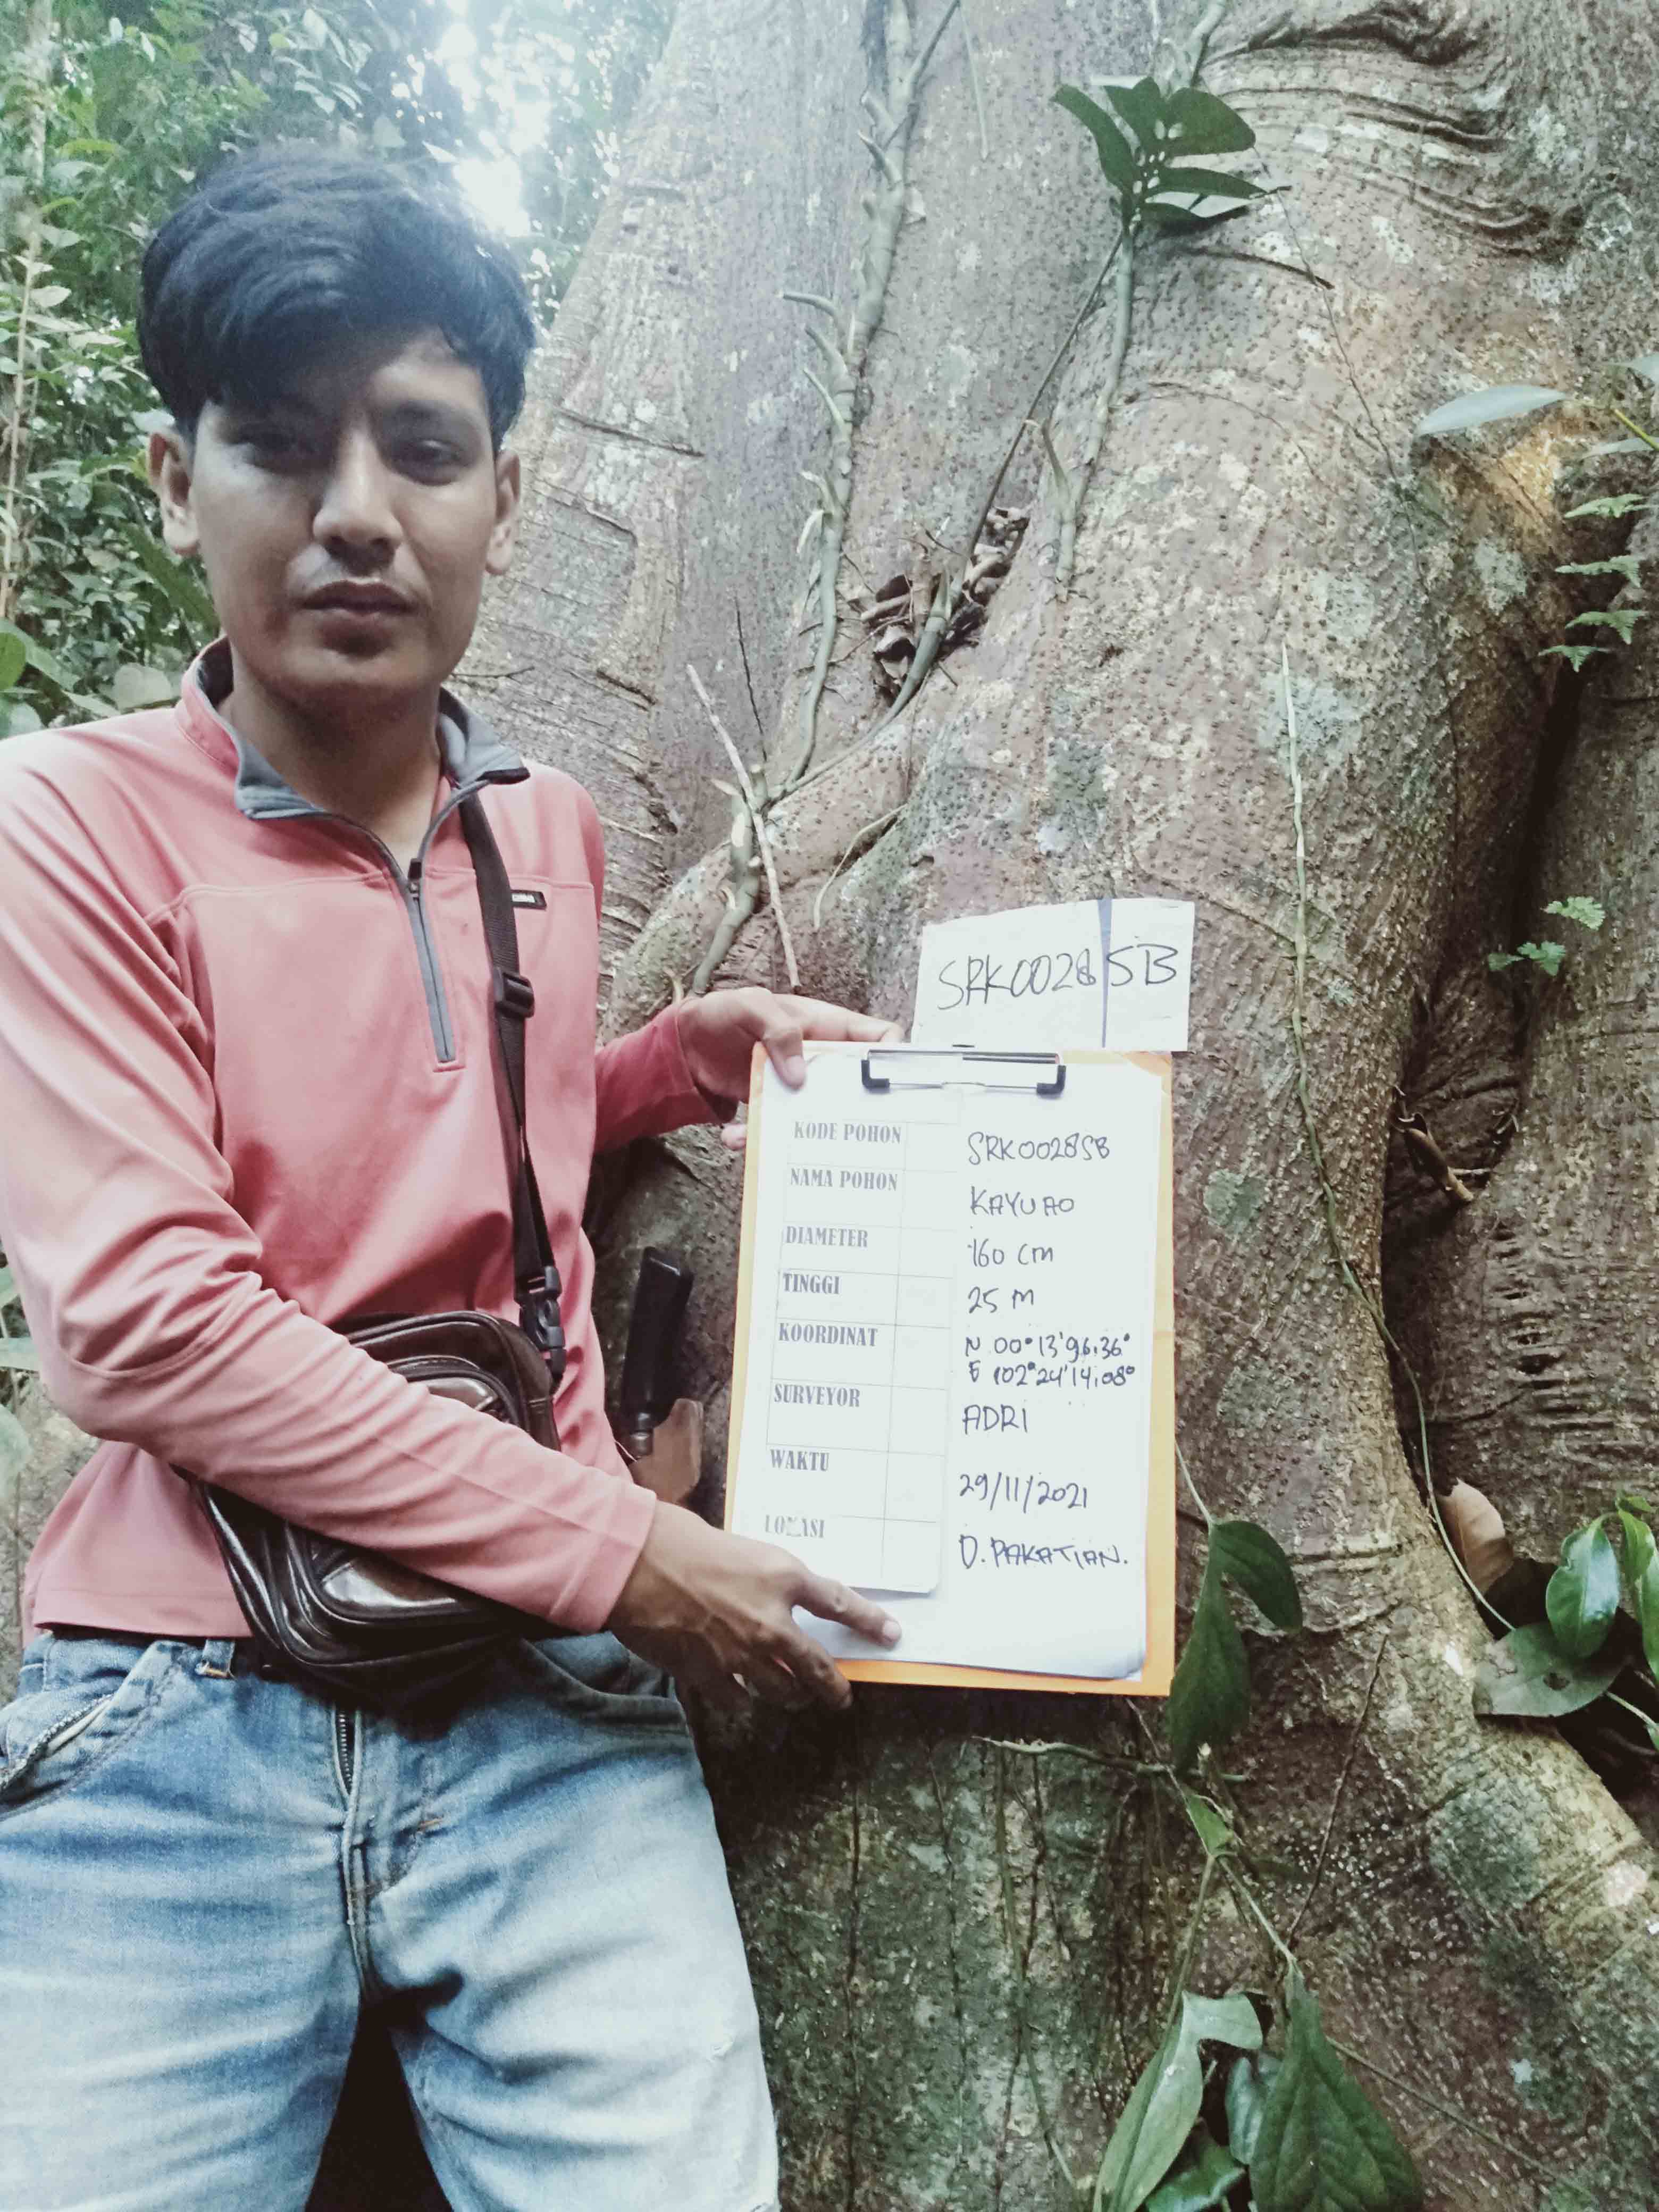 SRK0028SB
KODE POHON SRK0028SB
NAMA POHON KAYU AO
DIAMETER 160 cm
TINGGI 25 M
KOORDINAT N 00°13'96.36"
E 102°24'14.08"
SURVEYOR ADRI
WAKTU 29/11/2021
LOKASI D. PAKATIAN.